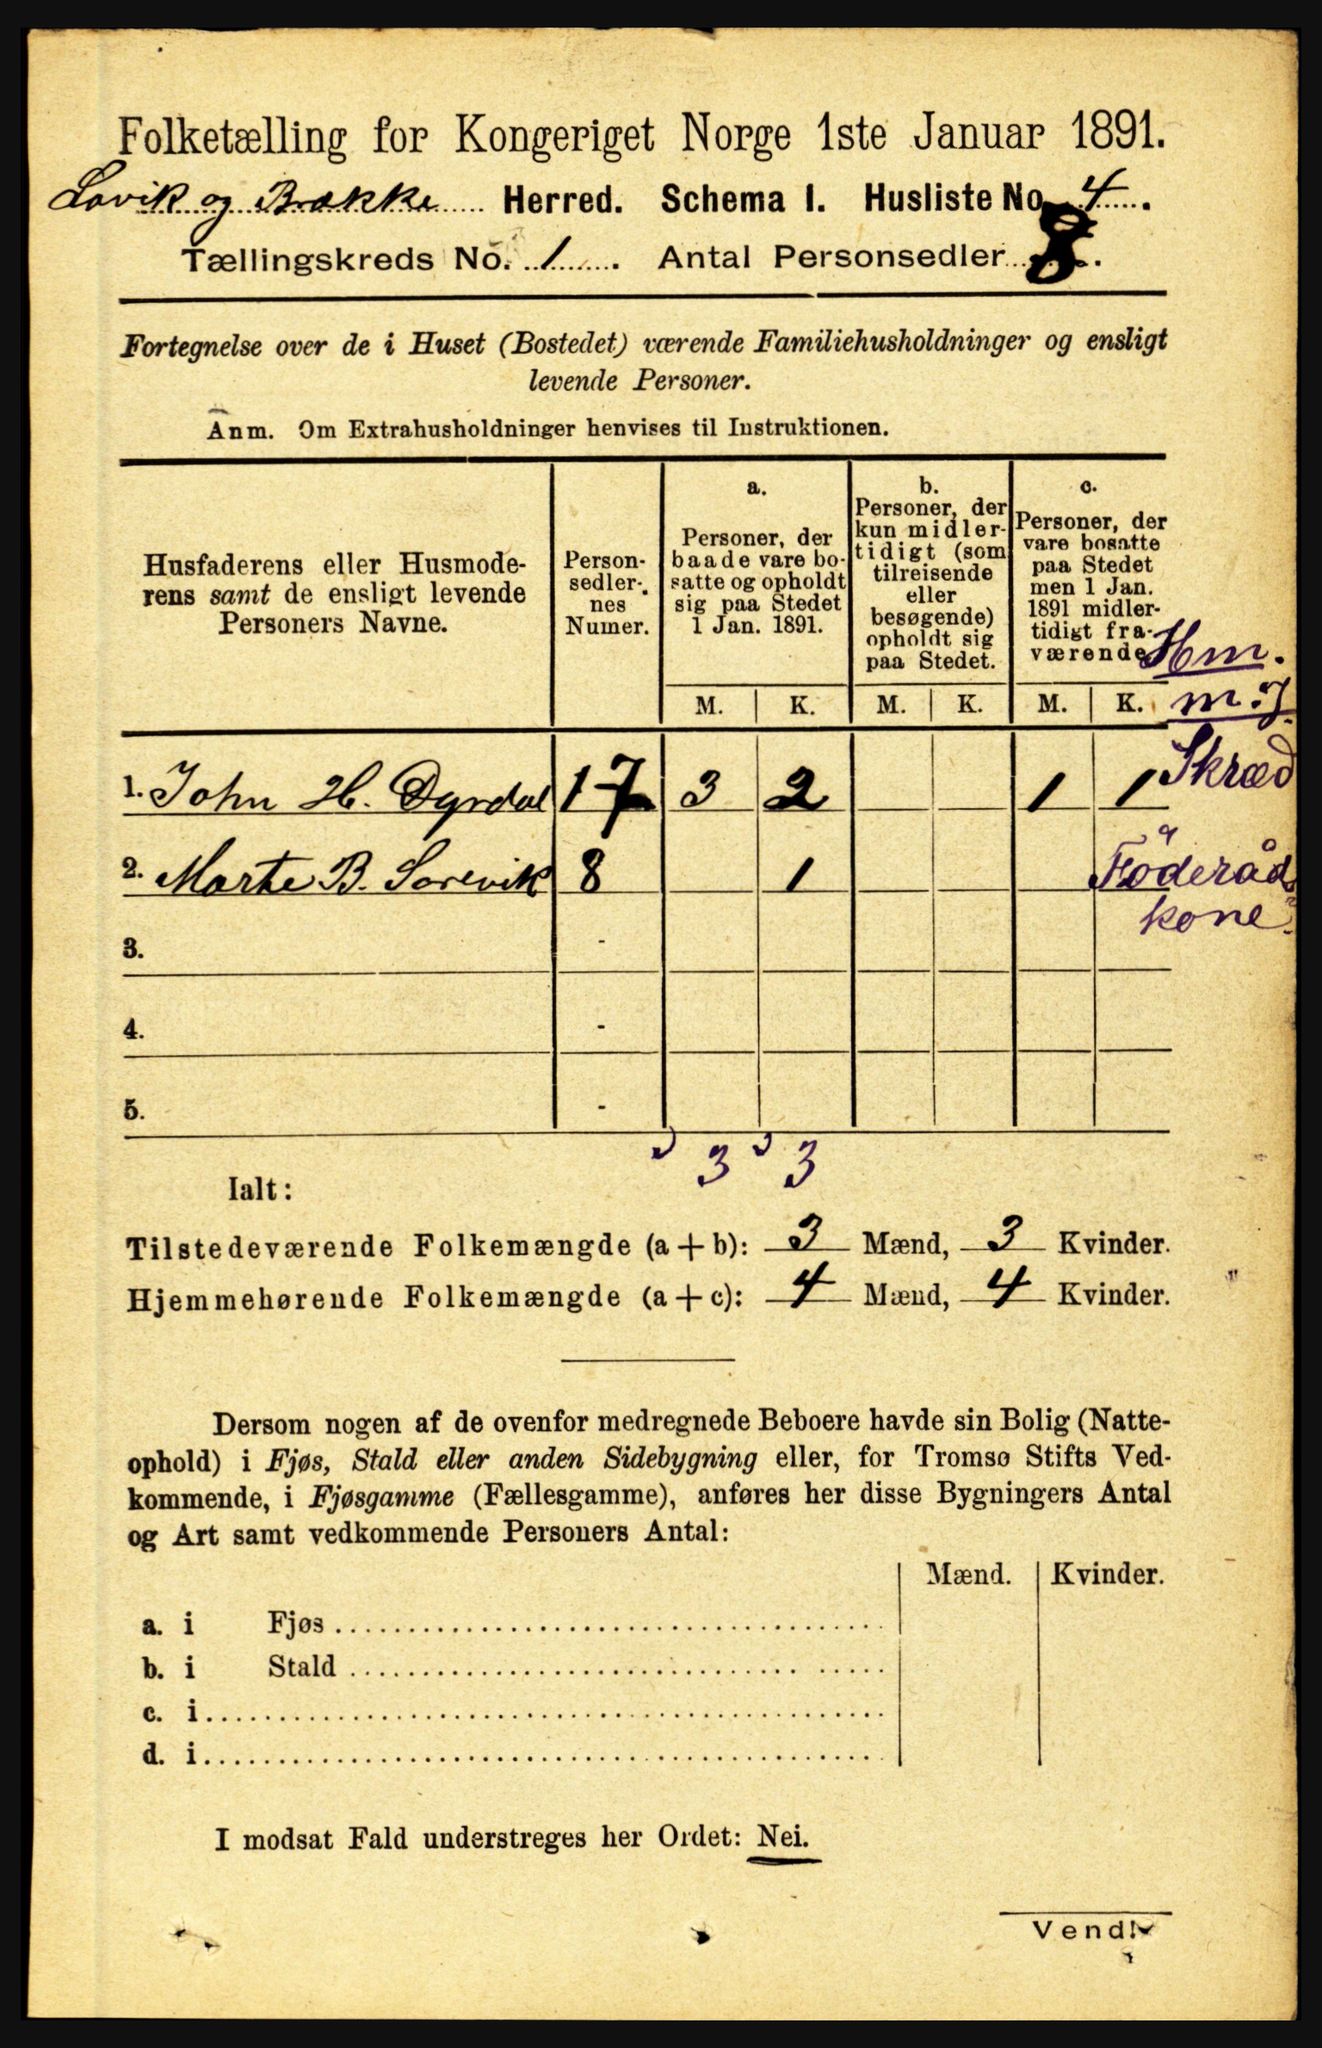 Folketælling for Kongeriget Norge 1ste Januar 1891.
Lavik og Brække Herred. Schema I. Husliste No. 4.
Tællingskreds No. 1. Antal Personsedler 8.
Fortegnelse over de i Huset (Bostedet) værende Familiehusholdninger og ensligt
levende Personer.
Anm. Om Extrahusholdninger henvises til Instruktionen.
Husfaderens eller Husmode-
rens samt de ensligt levende
Personers Navne.
Person-
sedler-
nes
Numer.
a.
Personer, der
baade vare bo-
satte og opholdt
sig paa Stedet
1 Jan. 1891.
b.
Personer, der
kun midler-
tidigt (som
tilreisende
eller
besøgende)
opholdt sig
paa Stedet.
c.
Personer, der
vare bosatte
paa Stedet
men 1 Jan.
1891 midler-
tidigt fra-
værende
Hm.
M. K. M. K. M. K. m. J.
1. John H. Dyrdal 1-7 3 2 1 1 Skræd
2. Marte B. Sørevik 8 1 Föderåds
kone
3. -
4. -
5. -
3 3
Ialt:
Tilstedeværende Folkemængde (a+b): 3 Mænd, 3 Kvinder.
Hjemmehørende Folkemængde (a+c): 4 Mænd, 4 Kvinder.
Dersom nogen af de ovenfor medregnede Beboere havde sin Bolig (Natte-
ophold) i Fjøs, Stald eller anden Sidebygning eller, for Tromsø Stifts Ved-
kommende, i Fjøsgamme (Fællesgamme), anføres her disse Bygningers Antal
og Art samt vedkommende Personers Antal:
Mænd. Kvinder.
a. i Fjøs
b. i Stald
c. i
d. i
I modsat Fald understreges her Ordet: Nei.
Vend!